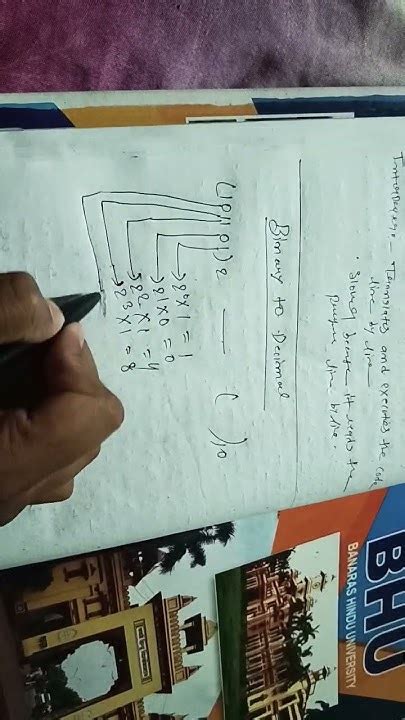 Interpreter - Translates and executes the code
line by line
• Slowly because it reads the
program line by line.
Binary to Decimal
(101101)2 ——— ( )10
2^0 × 1 = 1
2^1 × 0 = 0
2^2 × 1 = 4
2^3 × 1 = 8
BHU
BANARAS HINDU UNIVERSITY